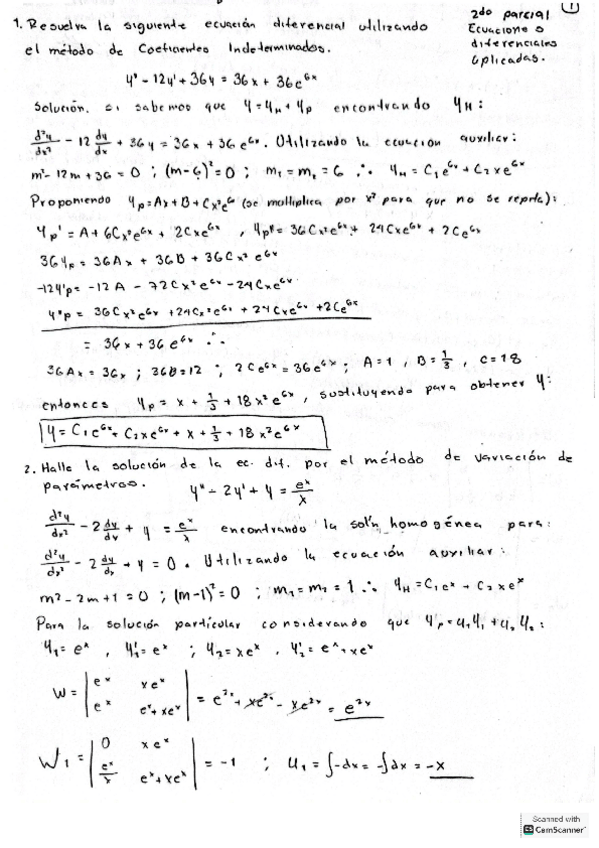 1. Resuelva la siguiente ecuación diferencial utilizando
el método de Coeficientes Indeterminados.
2do parcial
Ecuaciones
diferenciales
aplicadas.
1
y'' - 12y' + 36y = 36x + 36e^{6x}
Solución. si sabemos que y = y_H + y_p encontrando y_H:
d²y/dx² - 12 dy/dx + 36y = 36x + 36e^{6x}. Utilizando la ecuación auxiliar:
m² - 12m + 36 = 0 ; (m-6)² = 0 ; m₁ = m₂ = 6 ∴ y_H = C₁e^{6x} + C₂xe^{6x}
Proponiendo y_p = Ax + B + Cx²e^{6x} (se multiplica por x² para que no se repita):
y_p' = A + 6Cx²e^{6x} + 2Cxe^{6x} , y_p'' = 36Cx²e^{6x} + 24Cxe^{6x} + 2Ce^{6x}
36y_p = 36Ax + 36B + 36Cx²e^{6x}
-12y'p = -12A - 72Cx²e^{6x} - 24Cxe^{6x}
y''p = 36Cx²e^{6x} + 24Cx²e^{6x} + 24Cxe^{6x} + 2Ce^{6x}
= 36x + 36e^{6x} ∴
36Ax = 36x ; 36B = 12 ; 2Ce^{6x} = 36e^{6x} ; A = 1 , B = 1/3 , C = 18
entonces y_p = x + 1/3 + 18x²e^{6x}, sustituyendo para obtener y:
y = C₁e^{6x} + C₂xe^{6x} + x + 1/3 + 18x²e^{6x}
2. Halle la solución de la ec. dif. por el método de variación de
parámetros. y'' - 2y' + y = e^x/x
d²y/dx² - 2 dy/dx + y = e^x/x encontrando la sol'n homogénea para:
d²y/dx² - 2 dy/dx + y = 0. Utilizando la ecuación auxiliar:
m² - 2m + 1 = 0 ; (m-1)² = 0 ; m₁ = m₂ = 1 ∴ y_H = C₁e^x + C₂xe^x
Para la solución particular considerando que y_p = u₁y₁ + u₂y₂:
y₁ = e^x , y₁' = e^x ; y₂ = xe^x , y₂' = e^x + xe^x
W = | e^x xe^x ; e^x e^x + xe^x | = e^{2x} + xe^{2x} - xe^{2x} = e^{2x}
W₁ = | 0 xe^x ; e^x/x e^x + xe^x | = -1 ; u₁ = ∫-dx = -∫dx = -x
Scanned with
CamScanner